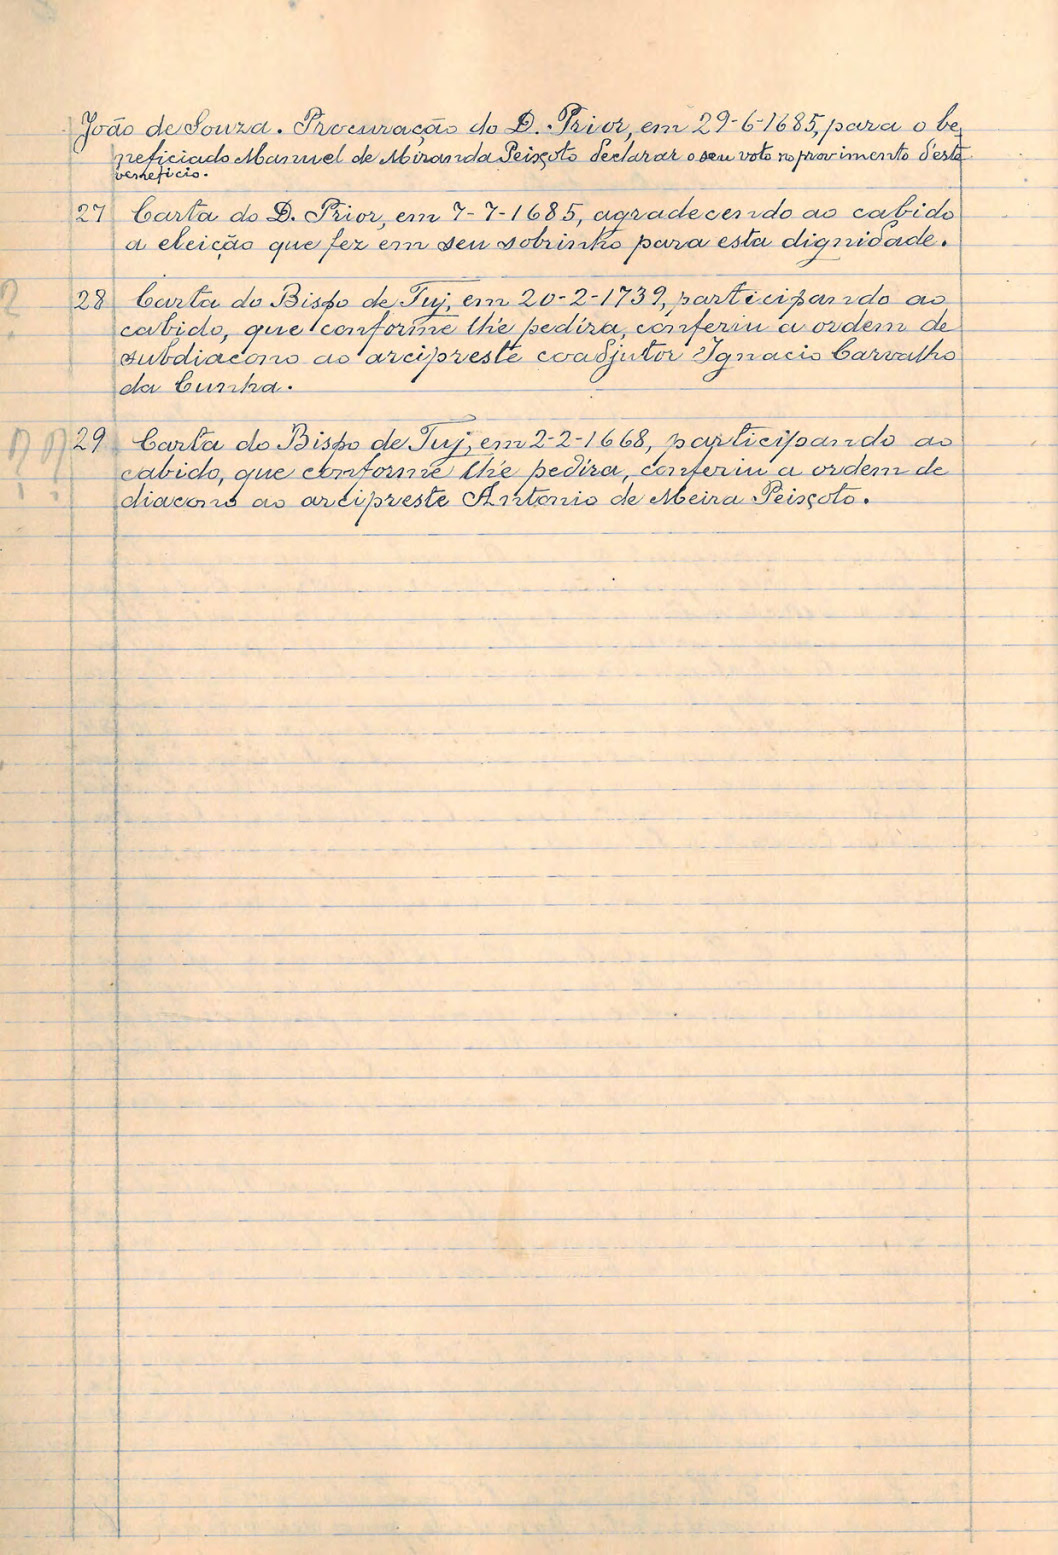 João de Souza. Procuração do D. Prior, em 29-6-1685, para o be
neficiado Manuel de Miranda Peixoto declarar o seu voto no provimento d'este
beneficio.
27 Carta do D. Prior, em 7-7-1685, agradecendo ao cabido
a eleição que fez em seu sobrinho para esta dignidade.
? 28 Carta do Bispo de Tuj, em 20-2-1739, participando ao
cabido, que conforme lhe pedira, conferiu a ordem de
subdiacono ao arcipreste coadjutor Ignacio Carvalho
da Cunha.
?? 29 Carta do Bispo de Tuj, em 2-2-1668, participando ao
cabido, que conforme lhe pedira, conferiu a ordem de
diacono ao arcipreste Antonio de Meira Peixoto.